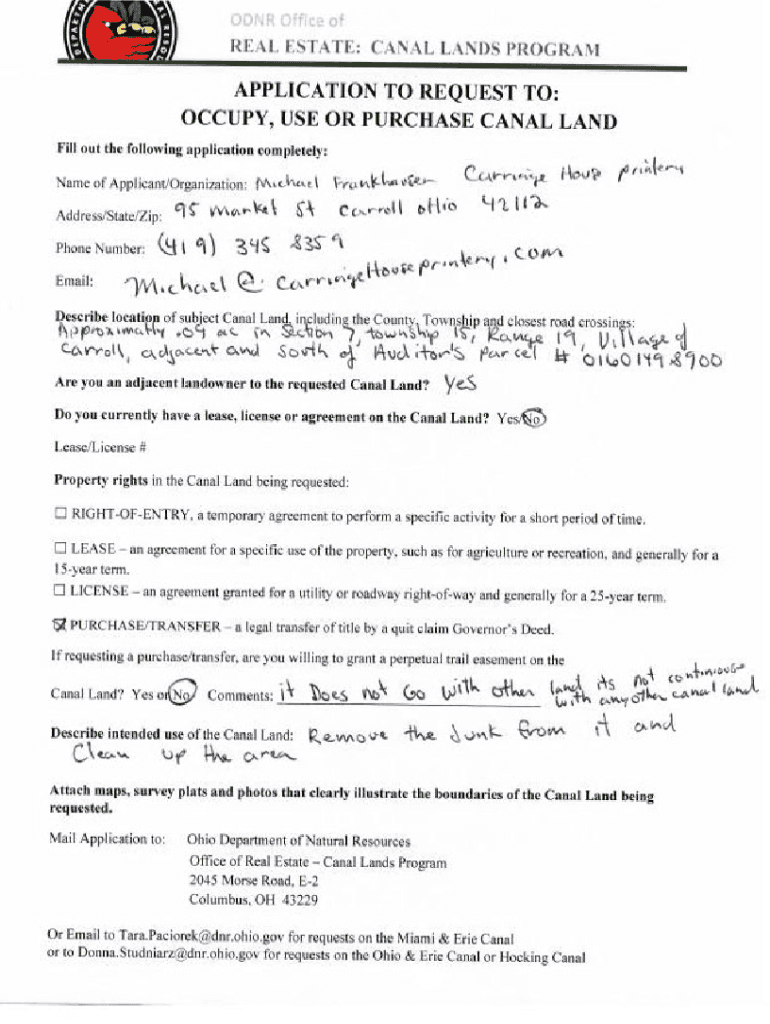 ODNR Office of
REAL ESTATE: CANAL LANDS PROGRAM
APPLICATION TO REQUEST TO:
OCCUPY, USE OR PURCHASE CANAL LAND
Fill out the following application completely:
Name of Applicant/Organization: Michael Frankhauser Carriage House Printery
Address/State/Zip: 95 Market St Carroll OHio 42112
Phone Number: (419) 345 8359
Email: Michael @ CarriageHouseprintery.com
Describe location of subject Canal Land, including the County, Township and closest road crossings:
Approximatly .09 ac in Section 7, township 15, Range 19, Village of
Carroll, adjacent and South of Auditor's Parcel # 0160149 8900
Are you an adjacent landowner to the requested Canal Land? yes
Do you currently have a lease, license or agreement on the Canal Land? Yes/No
Lease/License #
Property rights in the Canal Land being requested:
☐ RIGHT-OF-ENTRY, a temporary agreement to perform a specific activity for a short period of time.
☐ LEASE – an agreement for a specific use of the property, such as for agriculture or recreation, and generally for a
15-year term.
☐ LICENSE – an agreement granted for a utility or roadway right-of-way and generally for a 25-year term.
☒ PURCHASE/TRANSFER – a legal transfer of title by a quit claim Governor's Deed.
If requesting a purchase/transfer, are you willing to grant a perpetual trail easement on the
Canal Land? Yes or No Comments: it Does not Go with other land its not continious
with any other canal land
Describe intended use of the Canal Land: Remove the Junk from it and
Clean up the area
Attach maps, survey plats and photos that clearly illustrate the boundaries of the Canal Land being
requested.
Mail Application to: Ohio Department of Natural Resources
Office of Real Estate – Canal Lands Program
2045 Morse Road, E-2
Columbus, OH 43229
Or Email to Tara.Paciorek@dnr.ohio.gov for requests on the Miami & Erie Canal
or to Donna.Studniarz@dnr.ohio.gov for requests on the Ohio & Erie Canal or Hocking Canal